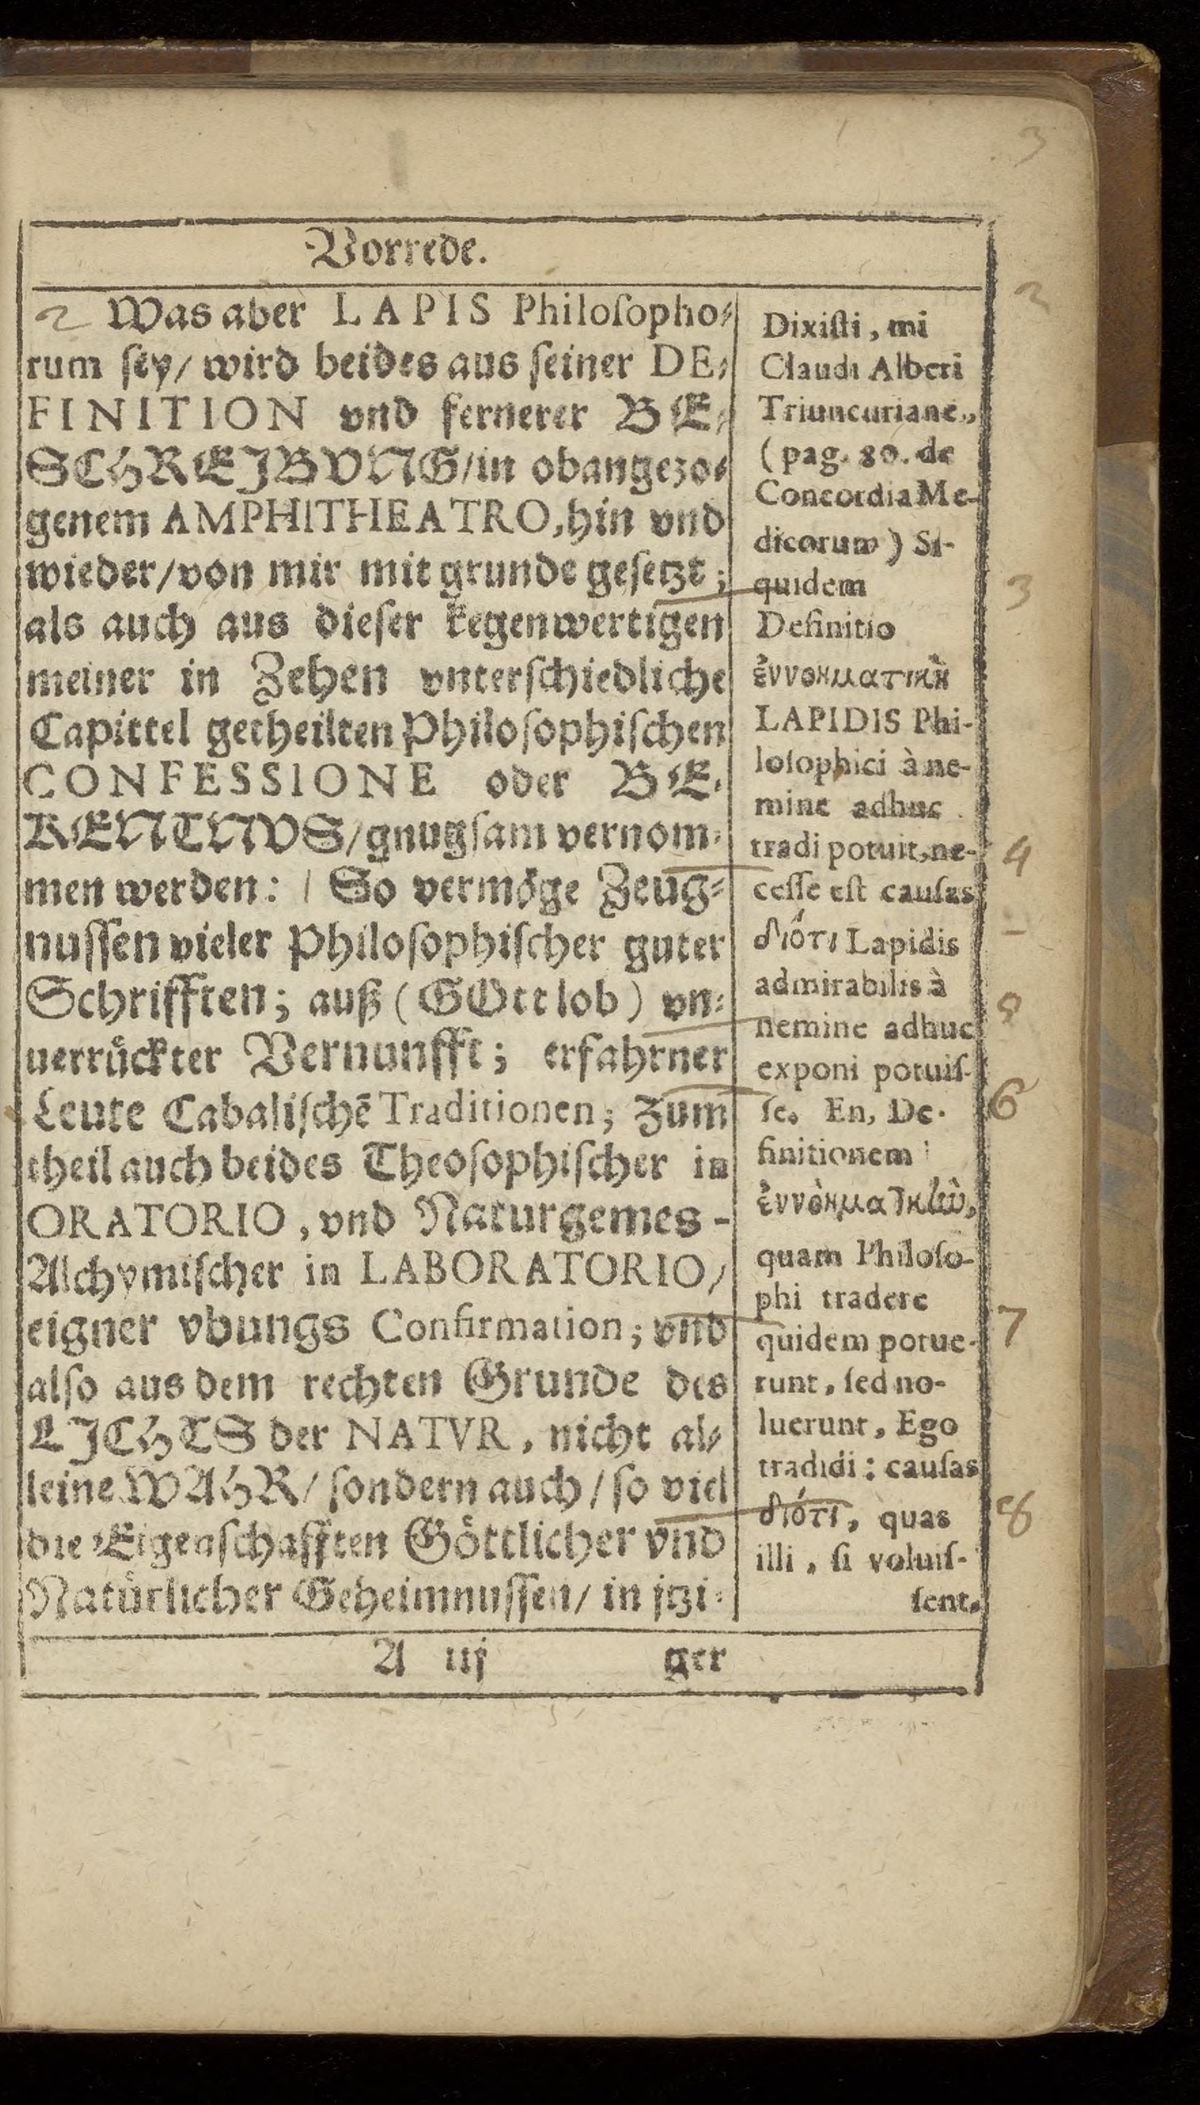 3
Vorrede.
2 Was aber LAPIS Philosopho⸗
rum sey/ wird beides aus seiner DE⸗
FINITION vnd fernerer BE⸗
SCHREIBVNG/in obangezo⸗
genem AMPHITHEATRO,hin vnd
wieder/von mir mit grunde gesetzt;
als auch aus dieser kegenwertigen
meiner in Zehen vnterschiedliche
Capittel getheilten Philosophischen
CONFESSIONE oder BE⸗
KENTNVS/gnugsam vernom⸗
men werden: / So vermöge Zeug⸗
nussen vieler Philosophischer guter
Schrifften; auß (GOtt lob) vn⸗
uerrückter Vernunfft; erfahrner
Leute Cabalischē Traditionen; zum
theil auch beides Theosophischer in
ORATORIO, vnd Naturgemes-
Alchymischer in LABORATORIO/
eigner vbungs Confirmation; vnd
also aus dem rechten Grunde des
LJCHTS der NATVR, nicht al⸗
leine WAHR/ sondern auch/ so viel
die Eigenschafften Göttlicher vnd
Natürlicher Geheimnussen/ in jtzi⸗
A iij ger
Dixisti, mi
Claudi Alberi
Triuncuriane,
(pag. 80. de
Concordia Me-
dicorum) Si-
quidem
Definitio
ἐννοηματικὴ
LAPIDIS Phi-
losophici à ne-
mine adhuc
tradi potuit, ne-
cesse est causas
διότι Lapidis
admirabilis à
nemine adhuc
exponi potuis-
se. En, De-
finitionem
ἐννοηματικὼ,
quam Philoso-
phi tradere
quidem potue-
runt, sed no-
luerunt, Ego
tradidi: causas
διότι, quas
illi, si voluis-
sent,
2
3
4
6
7
8